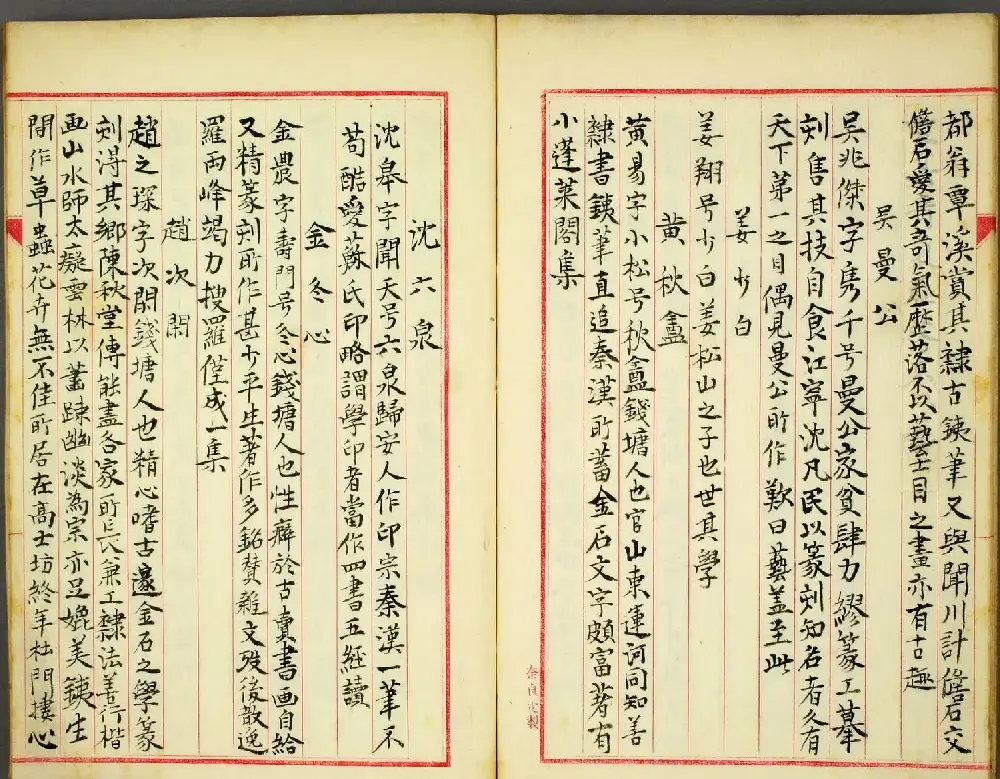 都翁覃溪賞其隷古鉄筆又與聞川計儋石交
儋石愛其奇氣歷落不以藝士目之畫亦有古趣
吳曼公
吳兆傑字雋千号曼公家貧肆力繆篆工摹
刻售其技自食江寧沈凡民以篆刻知名者久有
天下第一之目偶見曼公所作歎曰藝盖至此
姜少白
姜翔号少白姜松山之子也世其學
黄秋盦
黄易字小松号秋盦錢塘人也官山東運河同知善
隷書鉄筆直追秦漢所蓄金石文字頗富著有
小蓬萊閣集
沈六泉
沈皋字聞天号六泉歸安人作印宗秦漢一筆不
苟酷愛蘇氏印略謂學印者當作四書五經讀
金冬心
金農字壽門号冬心錢塘人也性癖於古賣書画自給
又精篆刻所作甚少平生著作多銘贊雜文歿後散逸
羅兩峰竭力搜羅僅成一集
趙次閑
趙之琛字次閑錢塘人也精心嗜古邃金石之學篆
刻淂其鄉陳秋堂傳能盡各家所長兼工隷法善行楷
画山水師太癡雲林以蕭疎幽淡為宗亦足媲美鉄生
閒作草蟲花卉無不佳所居在高士坊終年杜門摟心